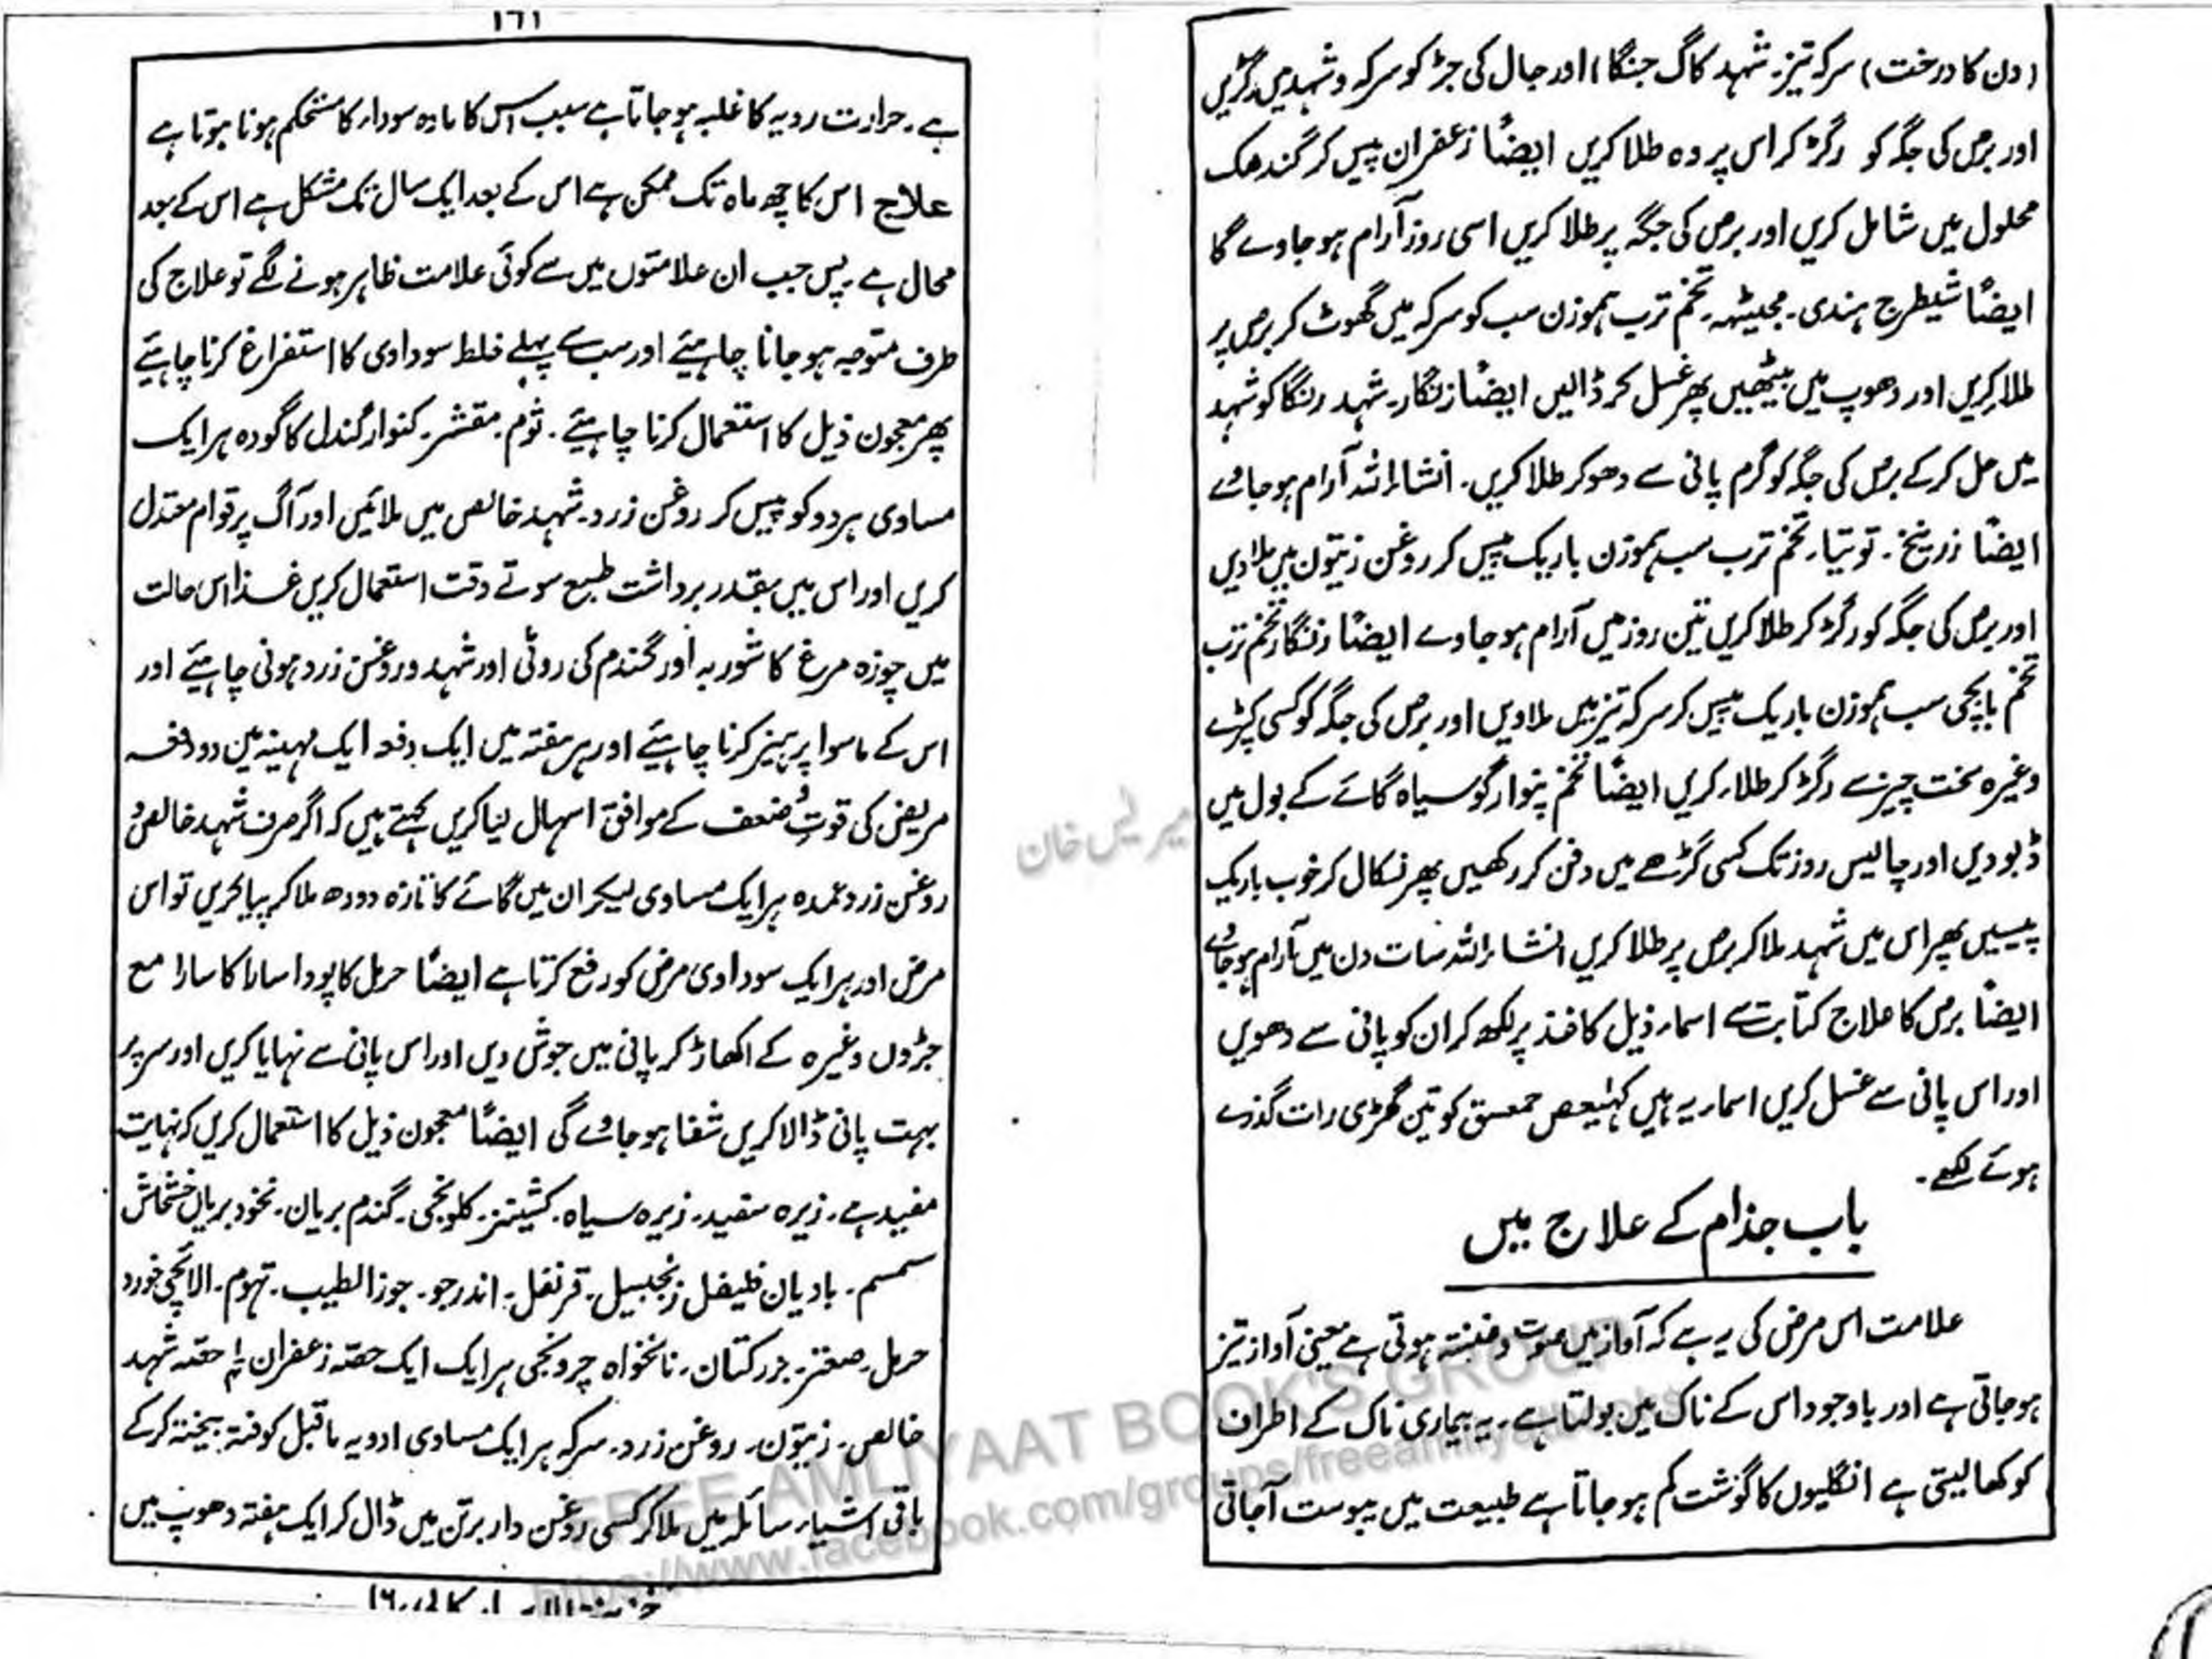 (دن کا درخت) سرکہ تیز۔ شہد کاگ جنگا) اور جال کی جڑ کو سرکہ و شہد میں رگڑیں
اور برص کی جگہ کو رگڑ کر اس پر وہ طلا کریں ایضاً زعفران پیس کر گندھک
محلول میں شامل کریں اور برص کی جگہ پر طلا کریں اسی روز آرام ہو جاوے گا
ایضاً شیطرج ہندی۔ مجیٹھہ۔ تخم ترب ہموزن سب کو سرکہ میں گھوٹ کر برص پر
طلا کریں اور دھوپ میں بیٹھیں پھر غسل کر ڈالیں ایضاً زنگار۔ شہد رنگا کو شہد
میں حل کر کے برص کی جگہ کو گرم پانی سے دھو کر طلا کریں۔ انشاء اللہ آرام ہو جاوے
ایضاً زرنیخ۔ توتیا۔ تخم ترب سب ہموزن باریک پیس کر روغن زیتون میں ملا دیں
اور برص کی جگہ کو رگڑ کر طلا کریں تین روز میں آرام ہو جاوے ایضاً زنگار تخم ترب
تخم بابچی سب ہموزن باریک پیس کر سرکہ تیز میں ملاویں اور برص کی جگہ کو کسی کپڑے
وغیرہ سخت چیز سے رگڑ کر طلاء کریں ایضاً تخم پنوار کو سیاہ گائے کے بول میں
ڈبو دیں اور چالیس روز تک کسی گڑھے میں دفن کر رکھیں پھر نکال کر خوب باریک
پیسیں پھر اس میں شہد ملا کر برص پر طلا کریں انشاء اللہ سات دن میں آرام ہو جاوے
ایضاً برص کا علاج کتابت سے اسماء ذیل کاغذ پر لکھ کر ان کو پانی سے دھویں
اور اس پانی سے غسل کریں اسماء یہ ہیں کہٰیعص حمعسق کو تین گھڑی رات گذرے
ہوئے لکھے۔
باب جذام کے علاج میں
علامت اس مرض کی یہ ہے کہ آواز میں صوت و غنتہ ہوتی ہے یعنی آواز تیز
ہو جاتی ہے اور باوجود اس کے ناک میں بولتا ہے۔ یہ بیماری ناک کے اطراف
کو کھا لیتی ہے انگلیوں کا گوشت کم ہو جاتا ہے طبیعت میں یبوست آجاتی
۱۶۱
ہے۔ حرارت ردیہ کا غلبہ ہو جاتا ہے سبب اس کا مادہ سوداء کا مستحکم ہونا ہوتا ہے
علاج اس کا چھ ماہ تک ممکن ہے اس کے بعد ایک سال تک مشکل ہے اس کے بعد
محال ہے۔ پس جب ان علامتوں میں سے کوئی علامت ظاہر ہونے لگے تو علاج کی
طرف متوجہ ہو جانا چاہیئے اور سب سے پہلے خلط سوداوی کا استفراغ کرنا چاہیئے
پھر معجون ذیل کا استعمال کرنا چاہیئے۔ ثوم۔ مقشر۔ کنوار گندل کا گودہ ہر ایک
مساوی ہر دو کو پیس کر روغن زرد۔ شہد خالص میں ملائیں اور آگ پر قوام معتدل
کریں اور اس میں بقدر برداشت طبع سوتے وقت استعمال کریں غذا اس حالت
میں چوزہ مرغ کا شوربہ اور گندم کی روٹی اور شہد و روغن زرد ہونی چاہیئے اور
اس کے ماسوا پرہیز کرنا چاہیئے اور ہر ہفتہ میں ایک دفعہ ایک مہینہ میں دو دفعہ
مریض کی قوت و ضعف کے موافق اسہال لیا کریں کہتے ہیں کہ اگر صرف شہد خالص و
روغن زرد عمدہ ہر ایک مساوی لیکر ان میں گائے کا تازہ دودھ ملا کر پیا کریں تو اس
مرض اور ہر ایک سوداوی مرض کو رفع کرتا ہے ایضاً حرمل کا پودا سارا کا سارا مع
جڑوں وغیرہ کے اکھاڑ کر پانی میں جوش دیں اور اس پانی سے نہایا کریں اور سر پر
بہت پانی ڈالا کریں شفا ہو جاوے گی ایضاً معجون ذیل کا استعمال کریں کہ نہایت
مفید ہے۔ زیرہ سفید۔ زیرہ سیاہ۔ کشینز۔ کلونجی۔ گندم بریان۔ نخود بریاں خشخاش
سمسم۔ بادیان فلیفل زنجبیل۔ قرنفل۔ اندرجو۔ جوز الطیب۔ تہوم۔ الائچی خورد
حرمل۔ صعتر۔ بزرکتان۔ نانخواہ چرونجی ہر ایک ایک حصہ زعفران حصہ شہد
خالص۔ زیتون۔ روغن زرد۔ سرکہ ہر ایک مساوی ادویہ ماقبل کوفتہ بیختہ کر کے
باقی اشیاء سائلہ میں ملا کر کسی روغن دار برتن میں ڈال کر ایک ہفتہ دھوپ میں
FREE AMLIYAAT BOOK'S GROUP
https://www.facebook.com/groups/freeamliyaatbooks